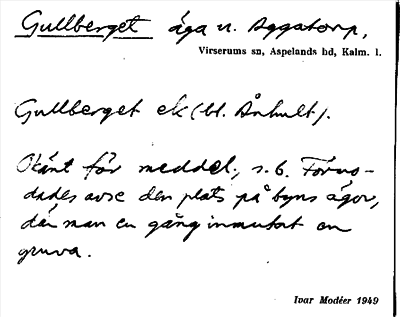 Gullberget äga u. Aggatorp,
Virserums sn, Aspelands hd, Kalm. l.
Gullberget ek (bl. Ånhult).
Okänt för meddel., s.b. Förmo-
dades avse den plats på byns ägor,
där man en gång inmutat en
gruva.
Ivar Modéer 1949